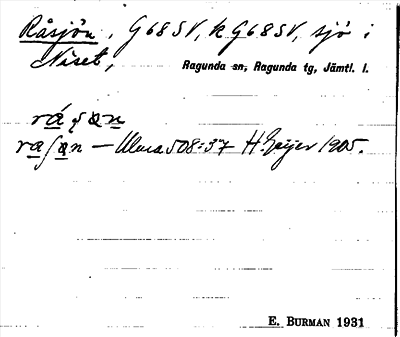 Råsjön, G68SV, k G68SV, sjö i
Niset, Ragunda sn, Ragunda tg, Jämtl. l.
råʂɑn
raʃan – Ulma 508:37 H. Geijer 1905.
E. BURMAN 1931